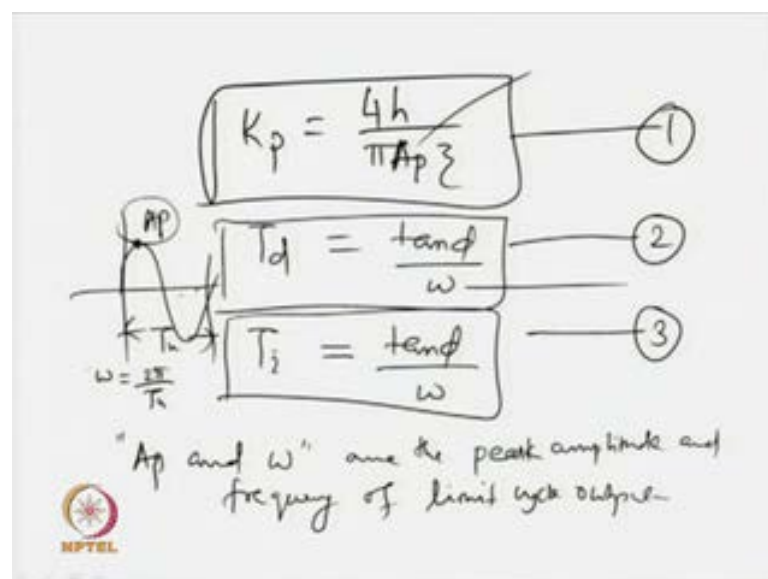 Kp = 4h / πAp ξ
1
Ap
Td = tanφ / ω
2
Tu
ω = 2π / Tu
Ti = tanφ / ω
3
"Ap and ω" are the peak amplitude and
frequency of limit cycle output
NPTEL